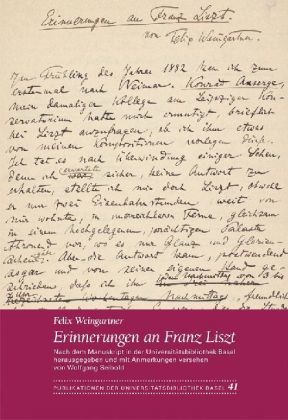 Erinnerungen an Franz Liszt.
von Felix Weingartner.
Im Frühling des Jahres 1882 kam ich zum
erstenmal nach Weimar. Konrad Ansorge,
mein damaliger Kollege am Leipziger Kon-
servatorium hatte mich ermutigt, brieflich
bei Liszt anzufragen, ob ich ihm etwas
von meinen Kompositionen vorlegen dürfe.
Ich tat es nach Überwindung einiger Scheu,
denn ich erwartete sicher, keine Antwort zu
erhalten, stellte ich mir doch Liszt, obwohl
er nur zwei Eisenbahnstunden weit von
mir wohnte, in unerreichbarer Ferne, gleichsam
in einem hochgelegenen, prächtigen Palaste
thronend vor, wo es nur Glanz und
Aber die Antwort kam,
sogar von seiner eigenen Hand ge-
schrieben, dass ich ihm
Nachmittag freundlich
Felix Weingartner
Erinnerungen an Franz Liszt
Nach dem Manuskript in der Universitätsbibliothek Basel
herausgegeben und mit Anmerkungen versehen
von Wolfgang Seibold
PUBLIKATIONEN DER UNIVERSITÄTSBIBLIOTHEK BASEL 41